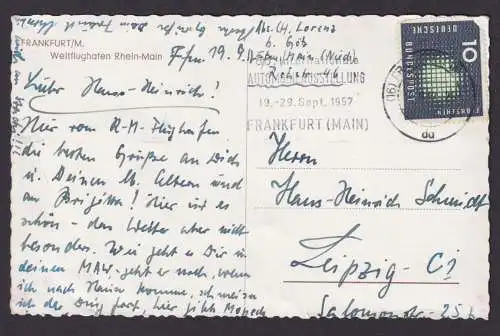 FRANKFURT/M.
Weltflughafen Rhein-Main
Ffm 19.9.
Abs. H. Lorenz
b. Göb
Ffm/Main (Nied)
INTERNATIONALE
AUTOMOBIL-AUSSTELLUNG
19.-29. Sept. 1957
FRANKFURT (MAIN)
10
DEUTSCHE
BUNDESPOST
du
Lieber Hans-Heinrich!
Hier vom R-M-Flughafen
die besten Grüße an Dich
u. Deinen lb. Eltern und
an Brigitte! Hier ist es
schön - das Wetter aber nicht
besonders. Wie geht es Dir u.
deinen geht er noch, wenn
ich nach Hause komme,
ich der Ding fort, hier gibts Moped
Herrn
Hans-Heinrich Schmidt
Leipzig - C1
Salomonstr. 25